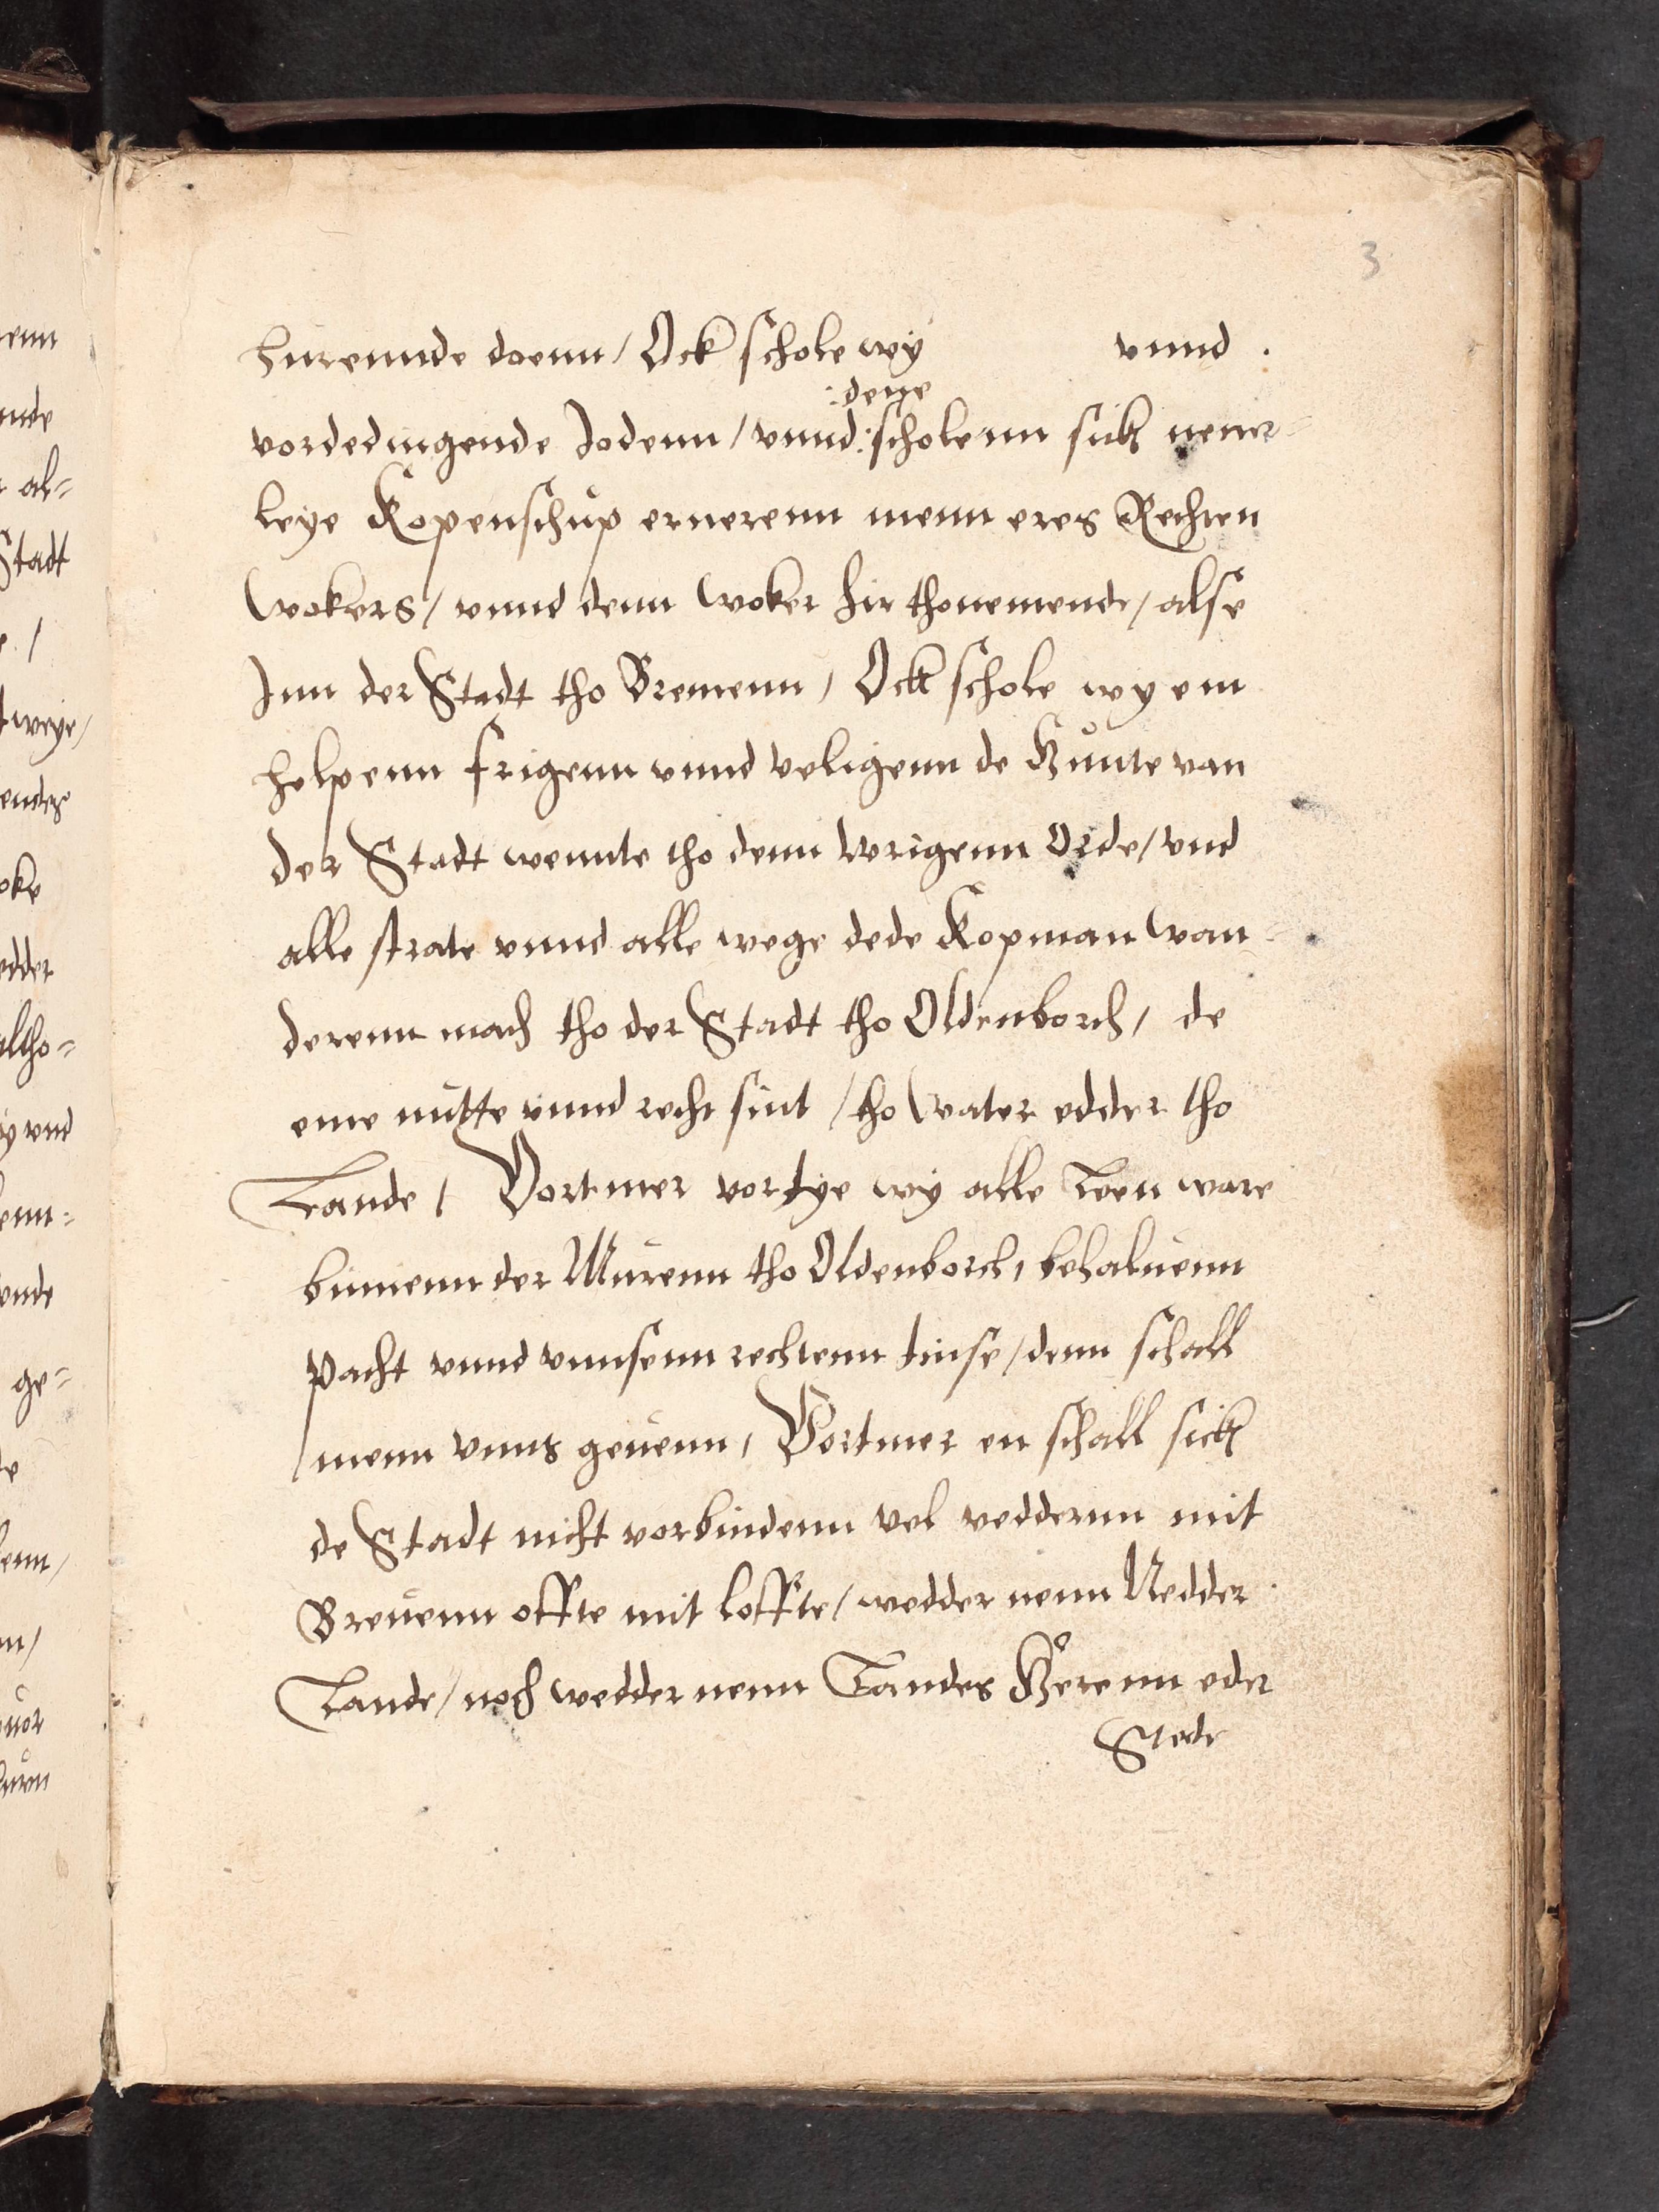 3
hurennde doenn / Ock schole wy vnnd .
:deye
vordedingende Jodenn / vnnd: scholenn sick nener=
leye Kopenschup ernerenn menn eres Rechten
Wokers / vnnd denn Woker hir thonemende / alse
Inn der Stadt tho Bremenn / Ock schole wy em
helpenn frigenn vnnd veligenn de Hunte van
der Stadt wennte tho denn wrigenn Orde / vnd
alle strate vnnd alle wege dede Kopman wan=
derenn mach tho der Stadt tho Oldenborch / de
eme nutte vnnd recht sint / tho Water edder tho
Lande / Vortmer vortye wy alle Leen ware
binnenn der Murenn tho Oldenborch, behaluenn
Pacht vnnd vnnsenn rechtenn tinse / denn schall
menn vnns geuenn, Vortmer en schall sick
de Stadt nicht vorbindenn vel veddernn mit
Breuenn offte mit loffte / wedder nenn Nedder
Lande / noch wedder nenn Landes Herenn eder
Stede
enn
nde
al=
Stadt
weye /
endes
oke
edder
altho=
y vnd
enn=
ende
ge=
enn /
uor